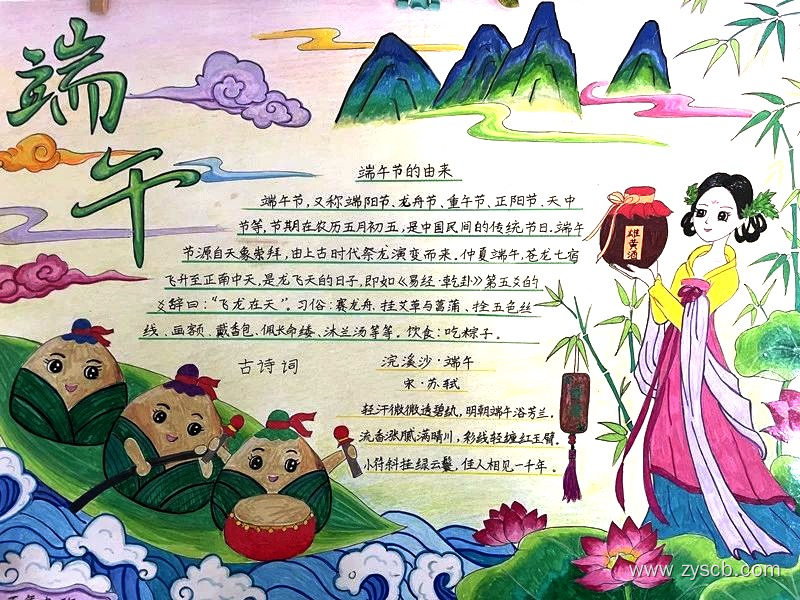 端午
端午节的由来
端午节,又称端阳节、龙舟节、重午节、正阳节、天中
节等,节期在农历五月初五,是中国民间的传统节日。端午
节源自天象崇拜,由上古时代祭龙演变而来。仲夏端午,苍龙七宿
飞升至正南中天,是龙飞天的日子,即如《易经·乾卦》第五爻的
爻辞曰:“飞龙在天”。习俗:赛龙舟、挂艾草与菖蒲、拴五色丝
线、画额、戴香包、佩长命缕、沐兰汤等等。饮食:吃粽子。
古诗词
浣溪沙·端午
宋·苏轼
轻汗微微透碧纨,明朝端午浴芳兰。
流香涨腻满晴川,彩线轻缠红玉臂。
小符斜挂绿云鬟,佳人相见一千年。
雄黄酒
www.zyscb.com